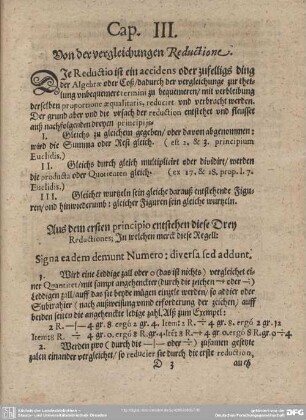 Cap. III.
Von der vergleichungen Reductione.
DJe Reductio ist ein accidens oder zufelligs ding
der Algebræ oder Coß/ dadurch der vergleichunge zur thei-
lung unbequemere termini zu bequemeren/ mit verbleibung
derselben proportione æqualitatis, reducirt und verbracht werden.
Der grund aber und die ursach der reduction entstehet und fleusset
auß nachfolgenden dreyen principijs.
I. Gleichs zu gleichem gegeben/ oder davon abgenommen:
wird die Summa oder Rest gleich. (est 2. & 3. principium
Euclidis.)
II. Gleichs durch gleich multiplicirt oder dividirt/ werden
die producta oder Quotienten gleich. (ex 17. & 18. prop. l. 7.
Euclid.)
III. Gleicher wurtzeln sein gleiche darauß entstehende Figu-
ren/ und hinwiderumb: gleicher Figuren sein gleiche wurtzeln.
Aus dem ersten principio entstehen diese Drey
Reductiones; In welchen merck diese Regell:
Signa eadem demunt Numero: diversa sed addunt.
1. Wird eine Leddige zall oder 0 (das ist nichts) vergleichet ei-
ner Quantitet/ mit sampt angehenckter (durch die zeichen + oder ÷)
Leddigen zall/ auff das sie beyde mügen einzlie werden/ so addier oder
Subtrahier (nach außweisung und erforderung der zeichen/ auff
beyden seiten die angehenckte ledige zahl. Alß zum Exempel:
2. Werden zwo (durch die + oder ÷) zusamen gesetzte
zalen einander vergleichet/ so reducier sie durch die erst reduction,
D 3 auch